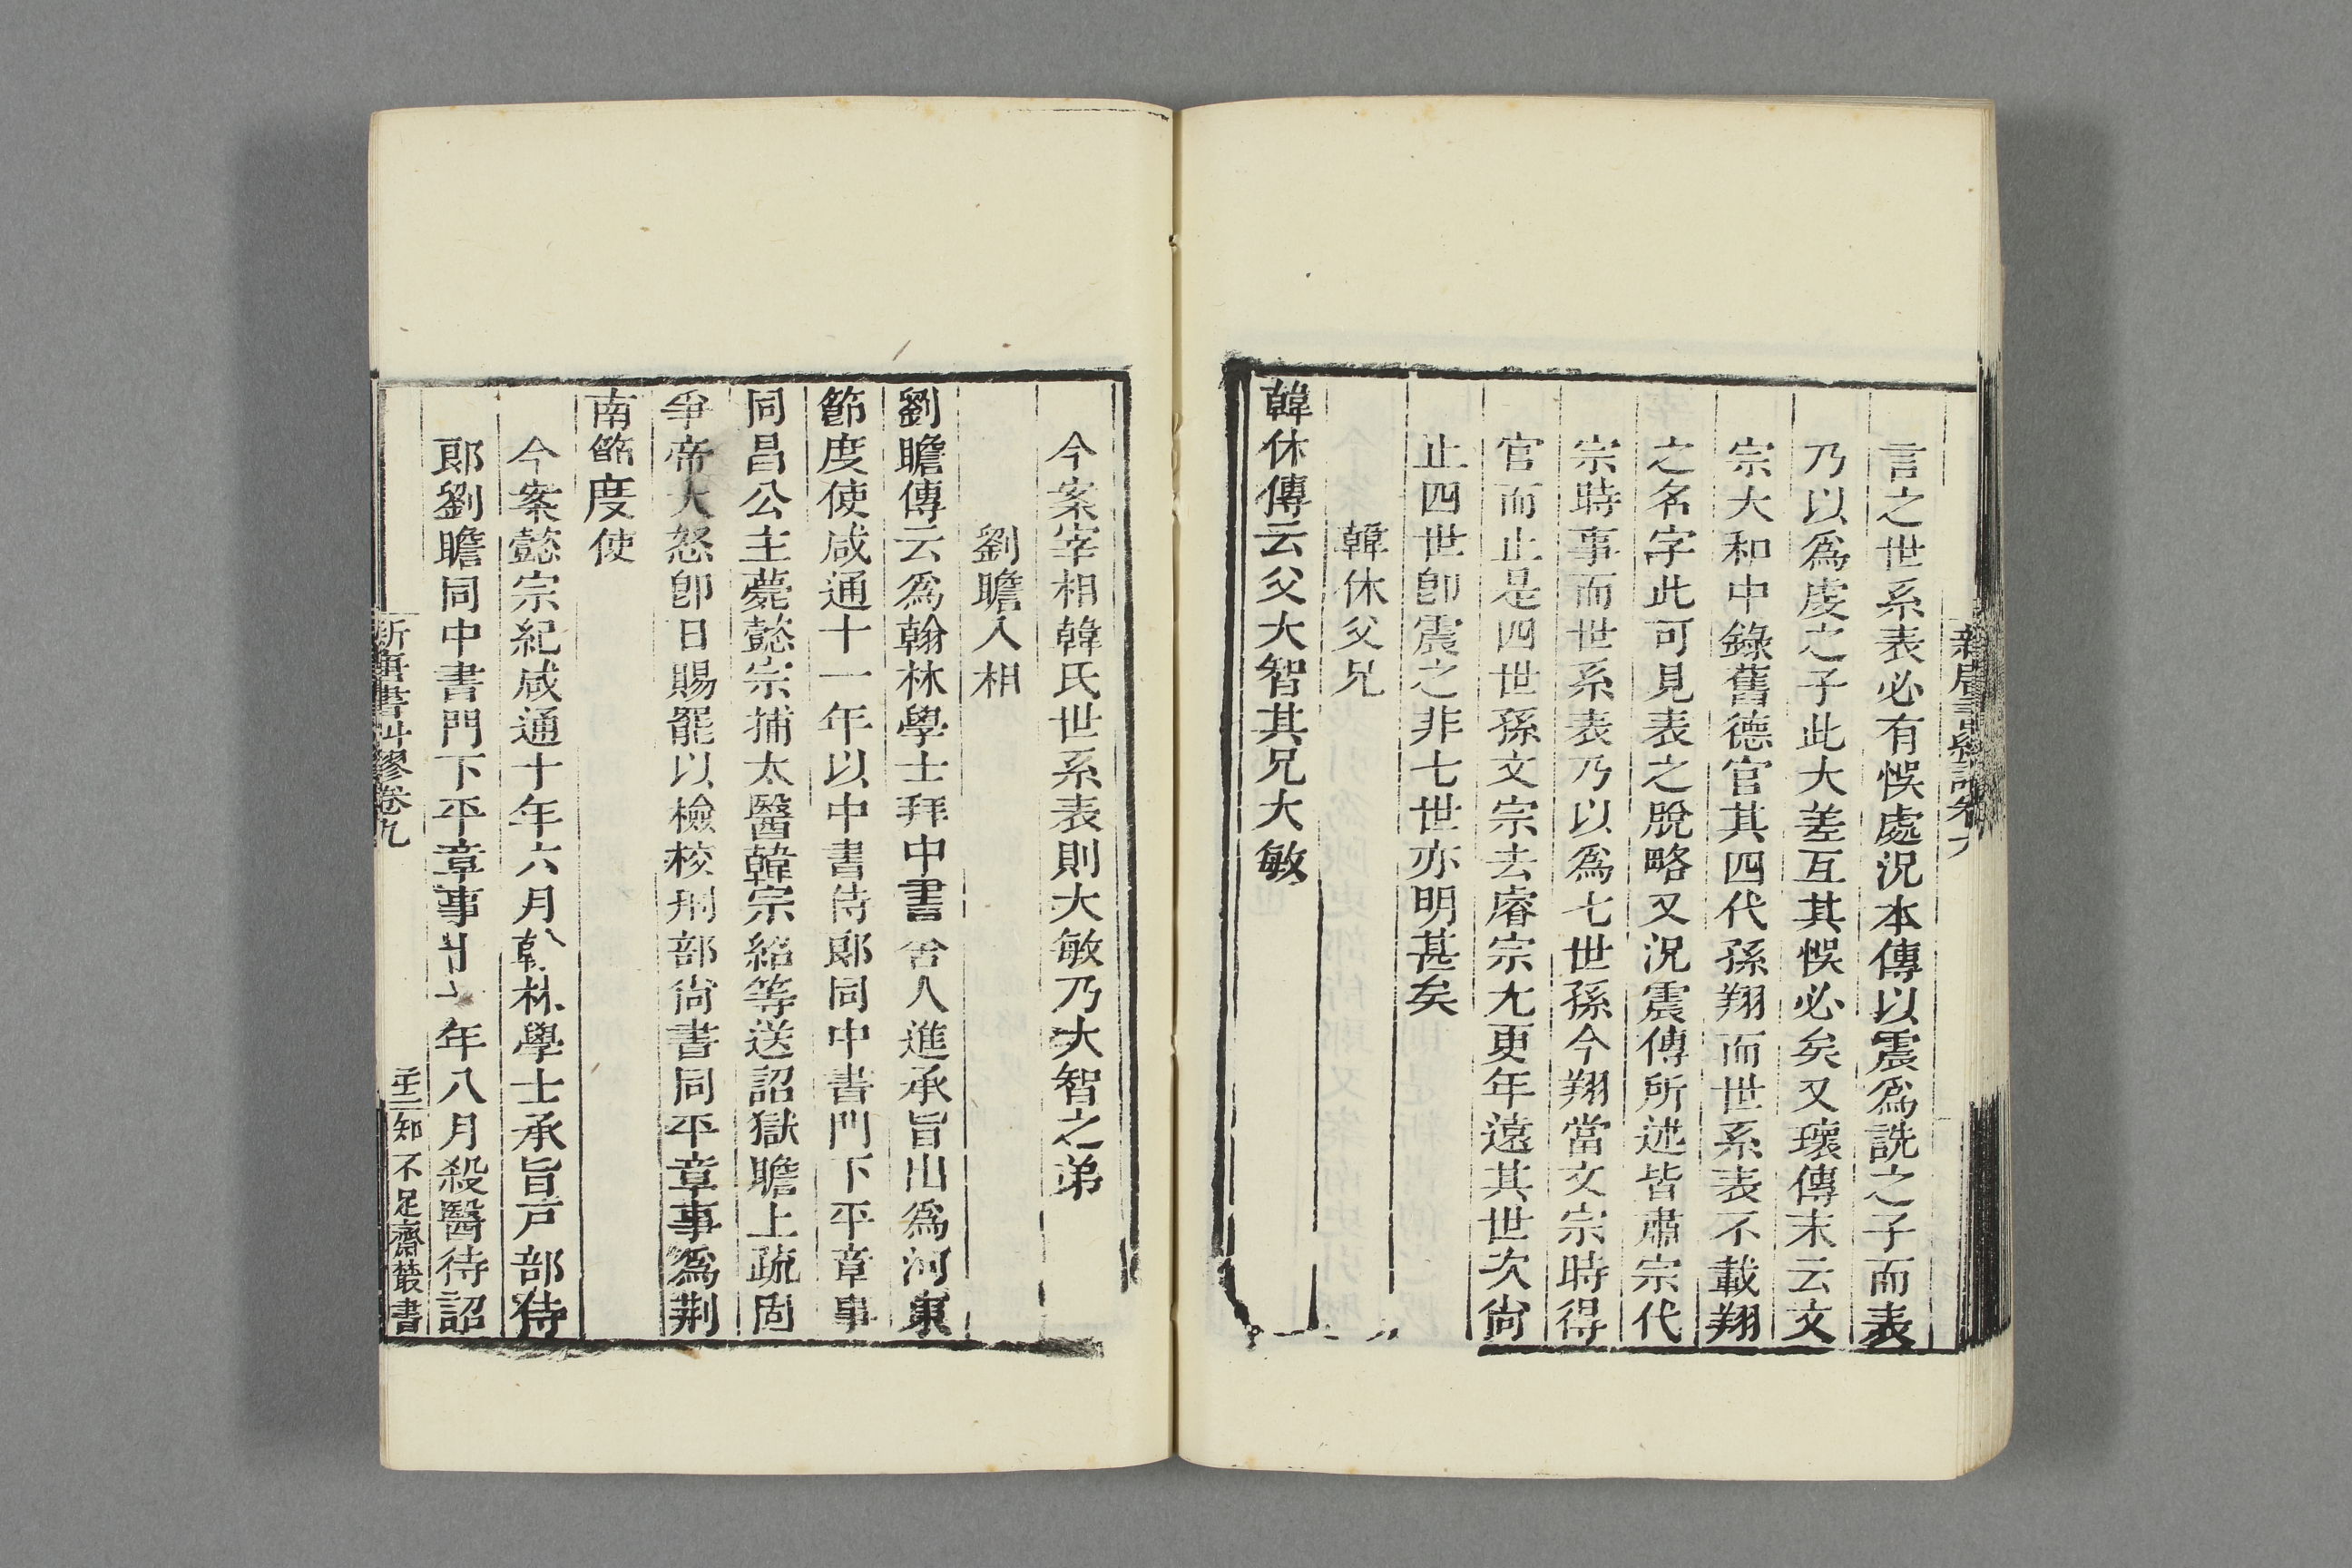 言之世系表必有悞處況本傳以震爲詵之子而表
乃以爲虔之子此大差互其悞必矣又瓌傳末云文
宗大和中錄舊德官其四代孫翔而世系表不載翔
之名字此可見表之脫略又況震傳所述皆肅宗代
宗時事而世系表乃以爲七世孫今翔當文宗時得
官而止是四世孫文宗去睿宗尢更年遠其世次尙
止四世卽震之非七世亦明甚矣
韓休父兄
韓休傳云父大智其兄大敏
今案宰相韓氏世系表則大敏乃大智之弟
劉瞻入相
劉瞻傳云爲翰林學士拜中書舍人進承旨出爲河東
節度使咸通十一年以中書侍郞同中書門下平章事
同昌公主薨懿宗捕太醫韓宗紹等送詔獄瞻上疏固
爭帝大怒卽日賜罷以檢校刑部尙書同平章事爲荆
南節度使
今案懿宗紀咸通十年六月翰林學士承旨戸部侍
郞劉瞻同中書門下平章事十一年八月殺醫待詔
新唐書糾繆卷九
知不足齋叢書